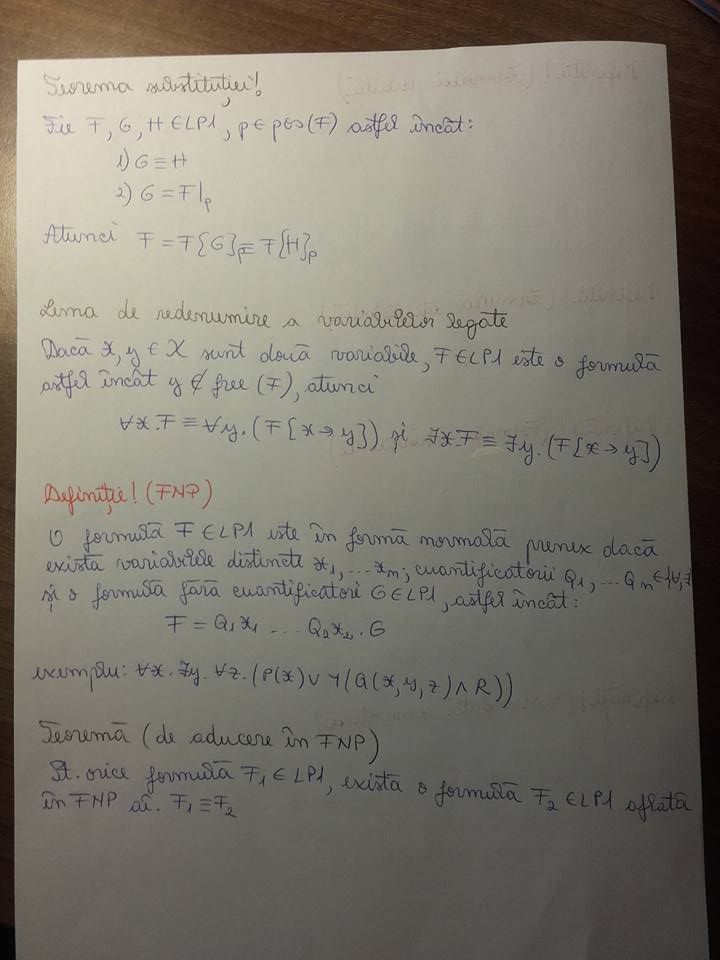 Teorema substituției!
Fie F, G, H ∈ LP1, p ∈ pos(F) astfel încât:
1) G ≡ H
2) G = F|p
Atunci F = F{G}p ≡ F{H}p
Lema de redenumire a variabilelor legate
Dacă x, y ∈ X sunt două variabile, F ∈ LP1 este o formulă
astfel încât y ∉ free (F), atunci
∀x.F ≡ ∀y.(F[x→y]) și ∃x.F ≡ ∃y.(F[x→y])
Definiție! (FNP)
O formulă F ∈ LP1 este în formă normală prenex dacă
există variabilele distincte x1, ... xn; cuantificatorii Q1, ... Qn ∈ {∀,∃
și o formulă fără cuantificatori G ∈ LP1, astfel încât:
F = Q1x1 ... Q2x2. G
exemplu: ∀x. ∃y. ∀z. (P(x) ∨ ¬(G(x,y,z) ∧ R))
Teoremă (de aducere în FNP)
Pt. orice formulă F1 ∈ LP1, există o formulă F2 ∈ LP1 aflată
în FNP aî. F1 ≡ F2